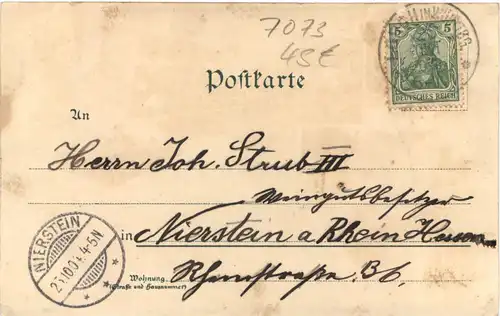 7073
45€
5 5
DEUTSCHES REICH
Postkarte
An
Herrn Joh. Strub III
Weingutsbesitzer
in Nierstein a Rhein Hessen
Rheinstraße 36.
Wohnung
(Straße und Hausnummer)
NIERSTEIN
4-5N